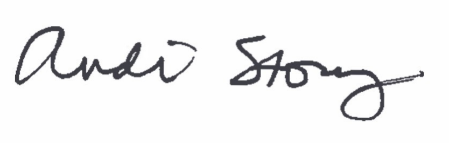 Andi Story